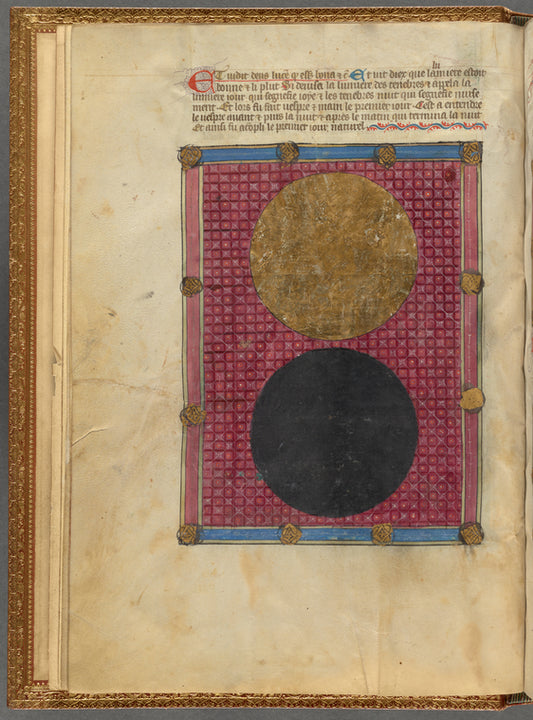 lu
Et uidit deus lucē q̄ esset bona & c̄ Et uit diex que lamiere estoit
bonne & li plut Si deuisa la lumiere des tenebres & apela la
lumiere iour qui segnefie ioye & les tenebres nuit qui segnefie mise
ment Et lors fu fait uespre & main le premier iour Cest a entendre
le uespre auant & puis la nuit & apres le matin qui termina la nuit
Et ainsi fu acōpli le premier iour naturel